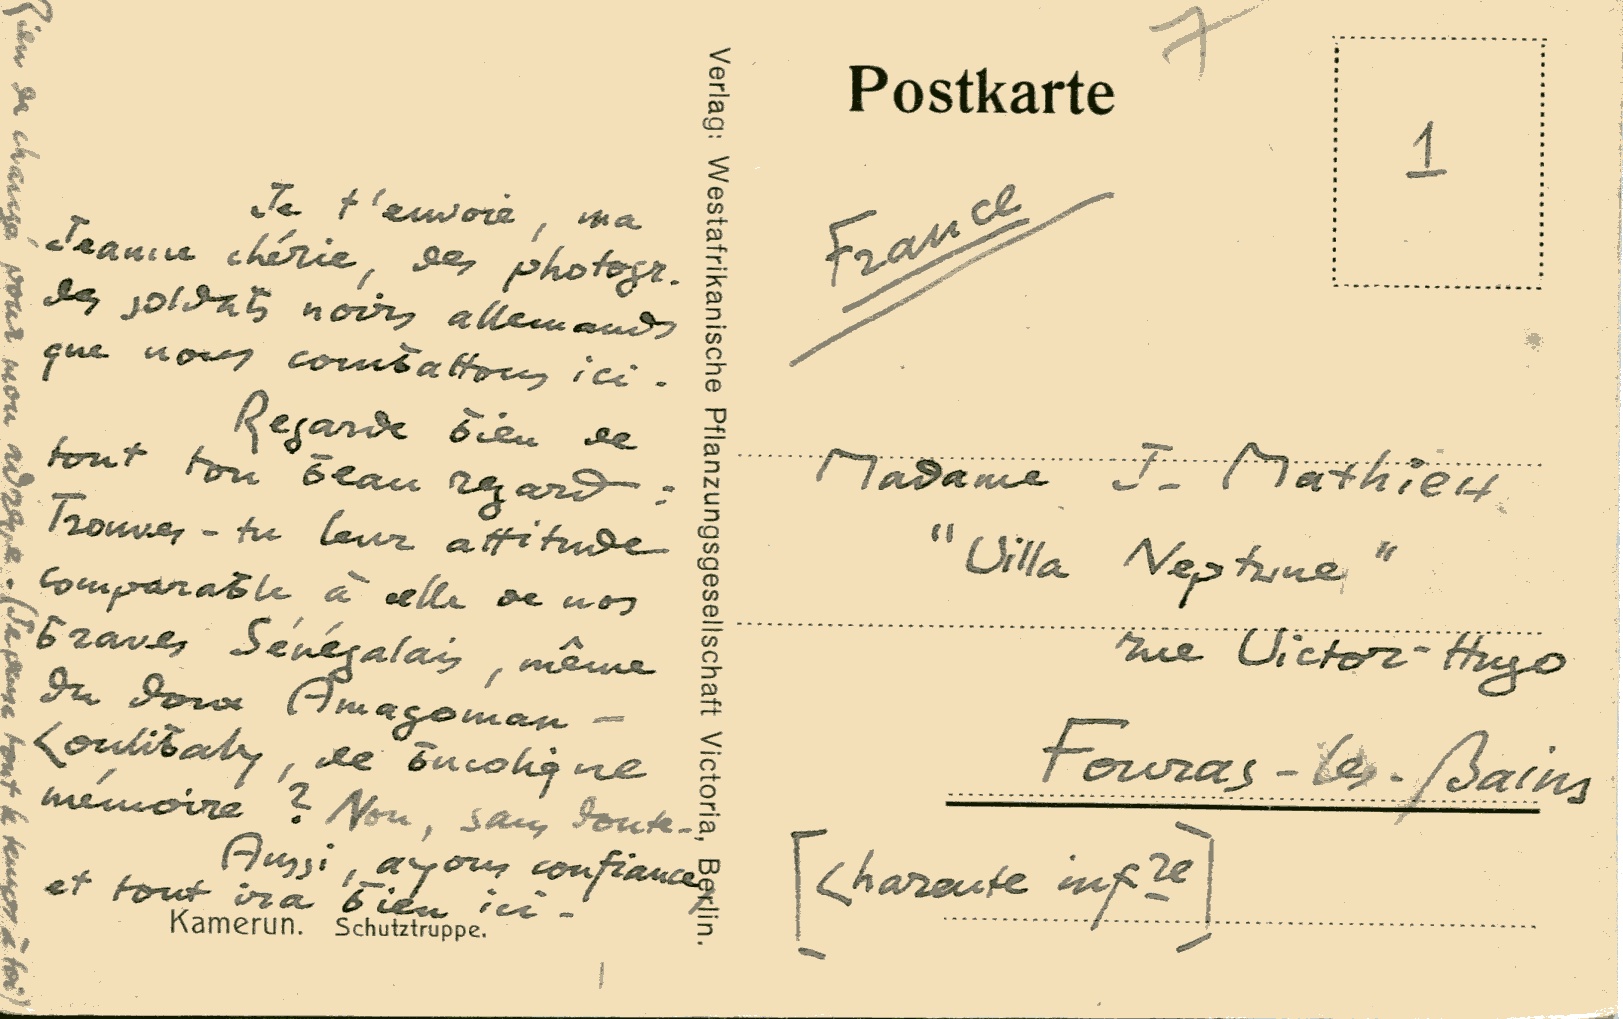 Rien de changé pour mon adresse. (Je pense tout le temps à toi)
Je t'envoie, ma
Jeanne chérie, des photogr.
des soldats noirs allemands
que nous combattons ici.
Regarde bien de
tout ton beau regard :
Trouves-tu leur attitude
comparable à celle de nos
braves Sénégalais, même
du doux Amagoman-
Coulibaly, de bucolique
mémoire ? Non, sans doute-
Aussi, ayons confiance,
et tout ira bien ici-
Kamerun. Schutztruppe.
Verlag: Westafrikanische Pflanzungsgesellschaft Victoria, Berlin.
7
Postkarte
1
France
Madame J. Mathieu
"Villa Neptune"
rue Victor-Hugo
Fouras-les-Bains
[Charente infre]